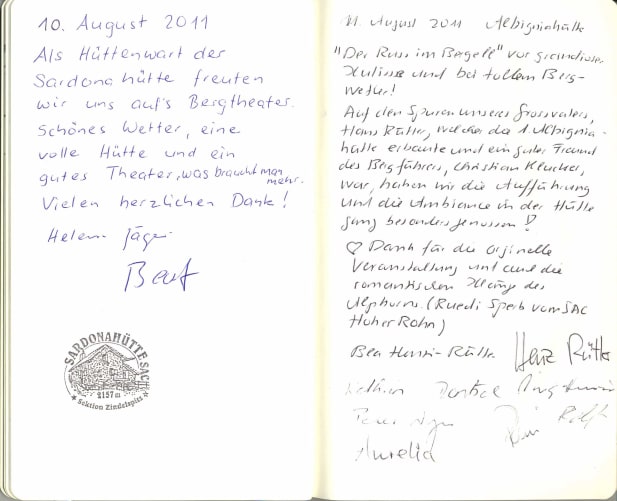 10. August 2011
Als Hüttenwart der
Sardonahütte freuten
wir uns auf's Bergtheater.
Schönes Wetter, eine
volle Hütte und ein
gutes Theater, was braucht man
mehr.
Vielen herzlichen Dank!
Helen Jäger
Beat
SARDONAHÜTTE SAC
2157m
Sektion Zindelspitz
11. August 2011 Albigniahütte
"Der Russ im Bergell" vor grandioser
Kulisse und bei tollem Berg-
wetter!
Auf den Spuren unseres Grossvaters,
Hans Rütter, welcher die 1. Albignia-
hütte erbaute und ein guter Freund
des Bergführers, Christian Klucker,
war, haben wir die Aufführung
und die Ambiance in der Hütte
ganz besonders genossen!
♡ Dank für die orginelle
Veranstaltung und auch die
romantischen Klänge des
Alphorns. (Ruedi Sperb vom SAC
Hoher Rohn)
Bea
Aurelia